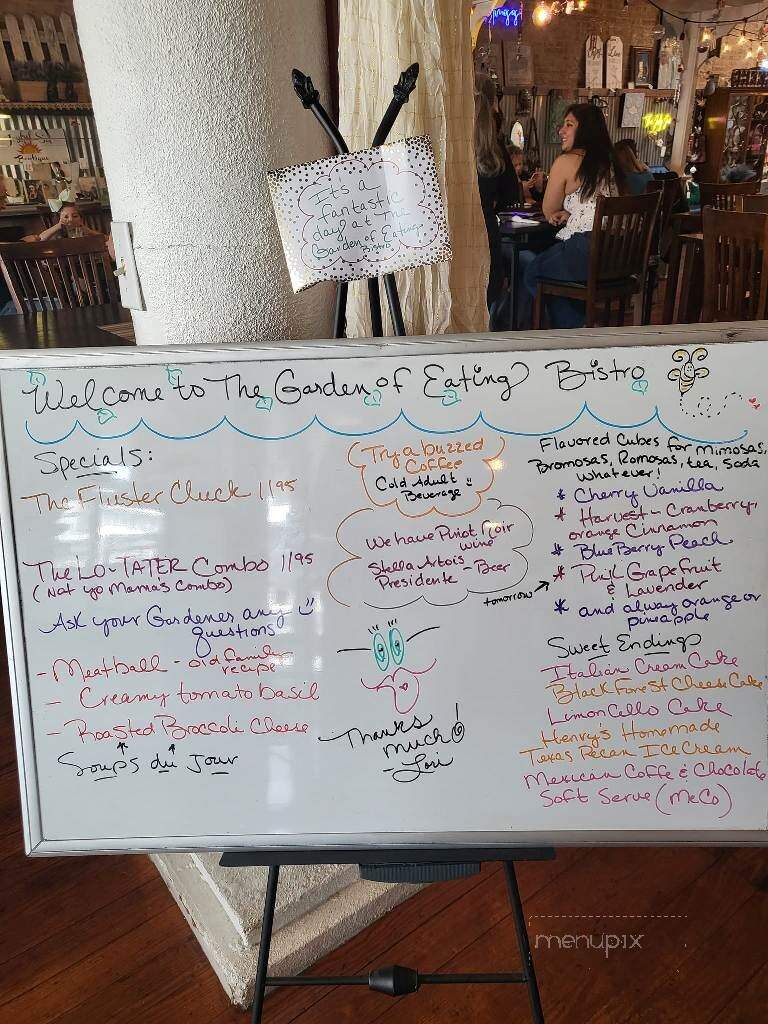 It's a
fantastic
day at The
Garden of Eating
Bistro
Welcome to The Garden of Eating Bistro
Specials:
The Fluster Cluck 11 95
The LO-TATER Combo 11 95
(Not Yo Mama's Combo)
Ask your Gardeners any
questions
- Meatball - old family
recipe
- Creamy tomato basil
- Roasted Broccoli Cheese
Soups du Jour
Try a buzzed
Coffee
Cold Adult
Beverage
We have Pinot Noir
wine
Stella Artois
Presidente - Beer
Thanks
much!
- Lori
Flavored Cubes for Mimosas,
Bromosas, Romosas, tea, Soda
whatever!
* Cherry Vanilla
* Harvest - Cranberry,
orange Cinnamon
* BlueBerry Peach
tomorrow → * Pink Grapefruit
& Lavender
* and alway orange or
pineapple
Sweet Endings
Italian Cream Cake
Black Forest Cheese Cake
Limoncello Cake
Henry's Homemade
Texas Pecan Ice Cream
Mexican Coffe & Chocolate
Soft Serve (MeCo)
menupix